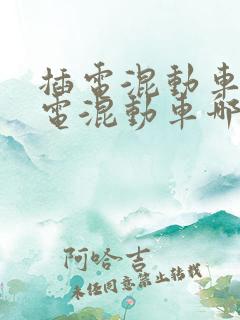 插電混動車
電混動車哪
阿哈吉
未经同意禁止转载